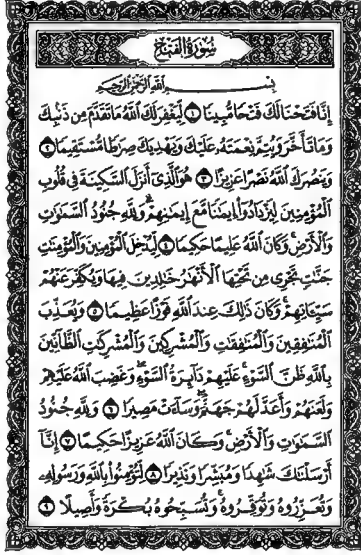 سُورَةُ الْفَتْحِ
بِسْمِ اللَّهِ الرَّحْمَٰنِ الرَّحِيمِ
إِنَّا فَتَحْنَا لَكَ فَتْحًا مُّبِينًا ١ لِّيَغْفِرَ لَكَ اللَّهُ مَا تَقَدَّمَ مِن ذَنۢبِكَ
وَمَا تَأَخَّرَ وَيُتِمَّ نِعْمَتَهُۥ عَلَيْكَ وَيَهْدِيَكَ صِرَٰطًا مُّسْتَقِيمًا ٢
وَيَنصُرَكَ اللَّهُ نَصْرًا عَزِيزًا ٣ هُوَ الَّذِىٓ أَنزَلَ السَّكِينَةَ فِى قُلُوبِ
الْمُؤْمِنِينَ لِيَزْدَادُوٓا۟ إِيمَٰنًا مَّعَ إِيمَٰنِهِمْ ۗ وَلِلَّهِ جُنُودُ السَّمَٰوَٰتِ
وَالْأَرْضِ ۚ وَكَانَ اللَّهُ عَلِيمًا حَكِيمًا ٤ لِّيُدْخِلَ الْمُؤْمِنِينَ وَالْمُؤْمِنَٰتِ
جَنَّٰتٍ تَجْرِى مِن تَحْتِهَا الْأَنْهَٰرُ خَٰلِدِينَ فِيهَا وَيُكَفِّرَ عَنْهُمْ
سَيِّـَٔاتِهِمْ ۚ وَكَانَ ذَٰلِكَ عِندَ اللَّهِ فَوْزًا عَظِيمًا ٥ وَيُعَذِّبَ
الْمُنَٰفِقِينَ وَالْمُنَٰفِقَٰتِ وَالْمُشْرِكِينَ وَالْمُشْرِكَٰتِ الظَّآنِّينَ
بِاللَّهِ ظَنَّ السَّوْءِ ۚ عَلَيْهِمْ دَآئِرَةُ السَّوْءِ ۖ وَغَضِبَ اللَّهُ عَلَيْهِمْ
وَلَعَنَهُمْ وَأَعَدَّ لَهُمْ جَهَنَّمَ ۖ وَسَآءَتْ مَصِيرًا ٦ وَلِلَّهِ جُنُودُ
السَّمَٰوَٰتِ وَالْأَرْضِ ۚ وَكَانَ اللَّهُ عَزِيزًا حَكِيمًا ٧ إِنَّآ
أَرْسَلْنَٰكَ شَٰهِدًا وَمُبَشِّرًا وَنَذِيرًا ٨ لِّتُؤْمِنُوا۟ بِاللَّهِ وَرَسُولِهِۦ
وَتُعَزِّرُوهُ وَتُوَقِّرُوهُ ۚ وَتُسَبِّحُوهُ بُكْرَةً وَأَصِيلًا ٩